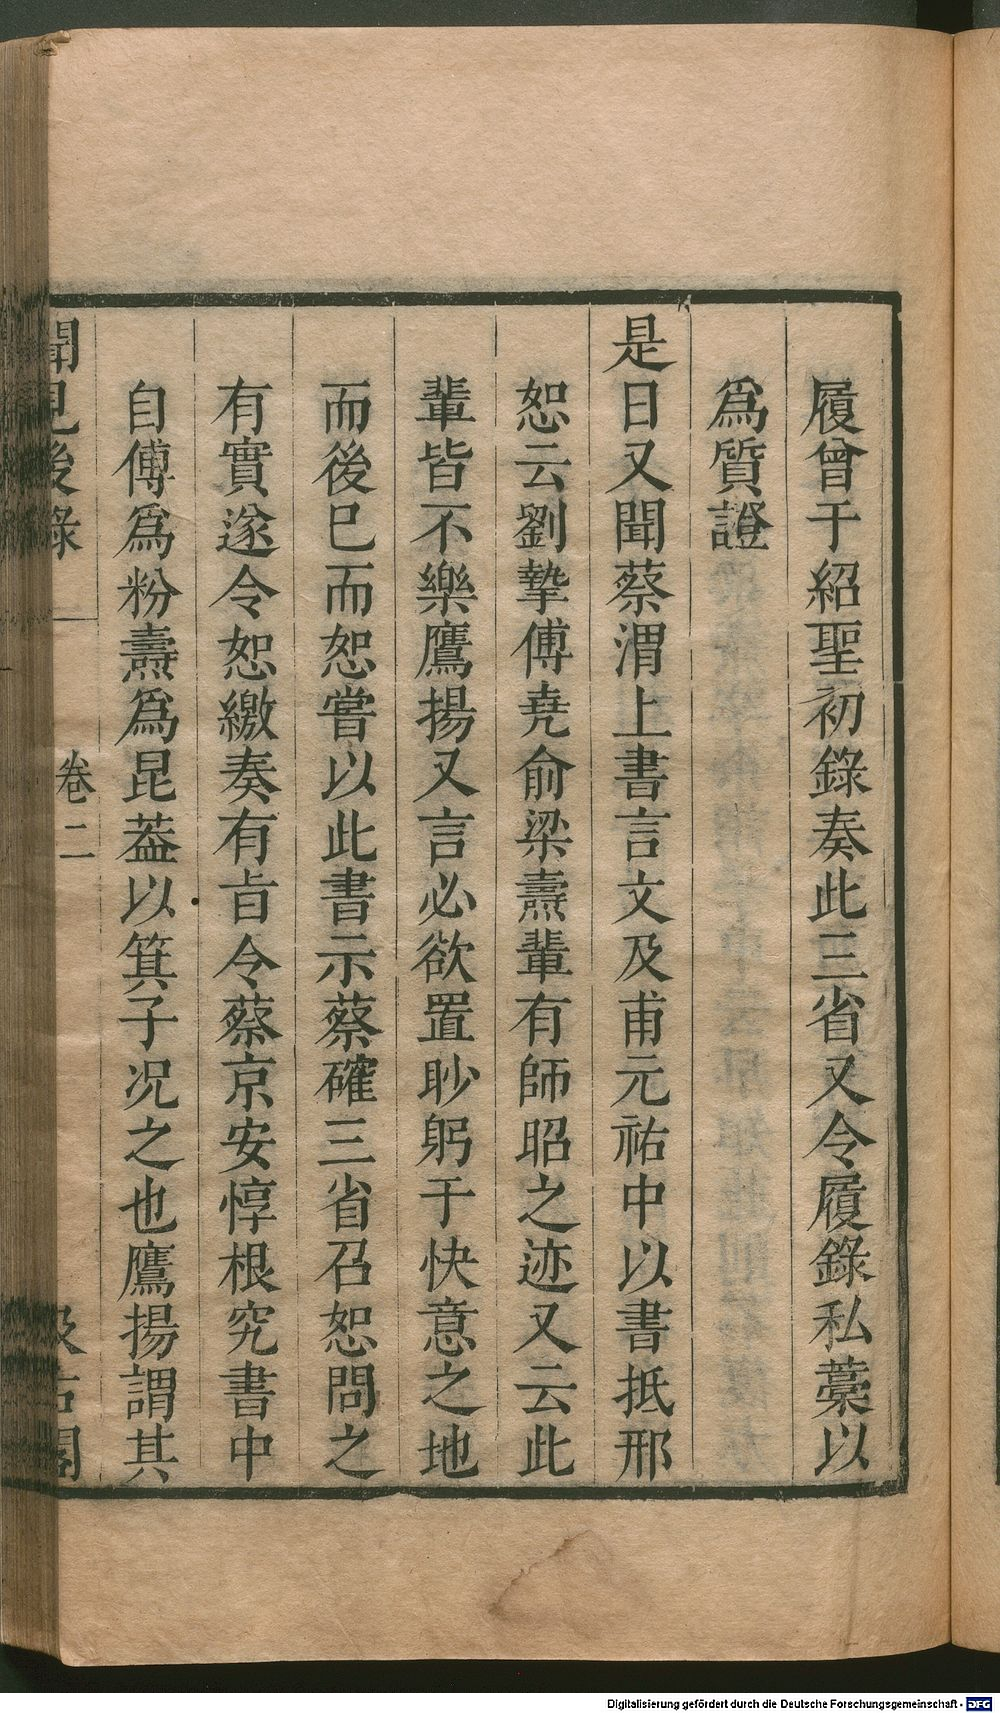 履曾于紹聖初錄奏此三省又令履錄私藁以
爲質證
是日又聞蔡渭上書言文及甫元祐中以書抵邢
恕云劉摯傅堯俞梁燾輩有師昭之迹又云此
輩皆不樂鷹揚又言必欲置眇躬于快意之地
而後巳而恕嘗以此書示蔡確三省召恕問之
有實遂令恕繳奏有旨令蔡京安惇根究書中
自傅爲粉燾爲昆葢以箕子况之也鷹揚謂其
聞見後錄 卷二 汲古閣
Digitalisierung gefördert durch die Deutsche Forschungsgemeinschaft - DFG